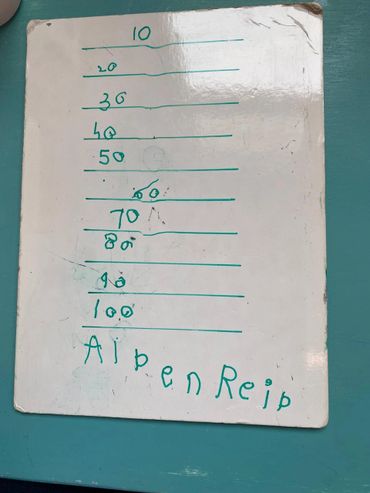 10
20
30
40
50
60
70
80
90
100
Alben Reip